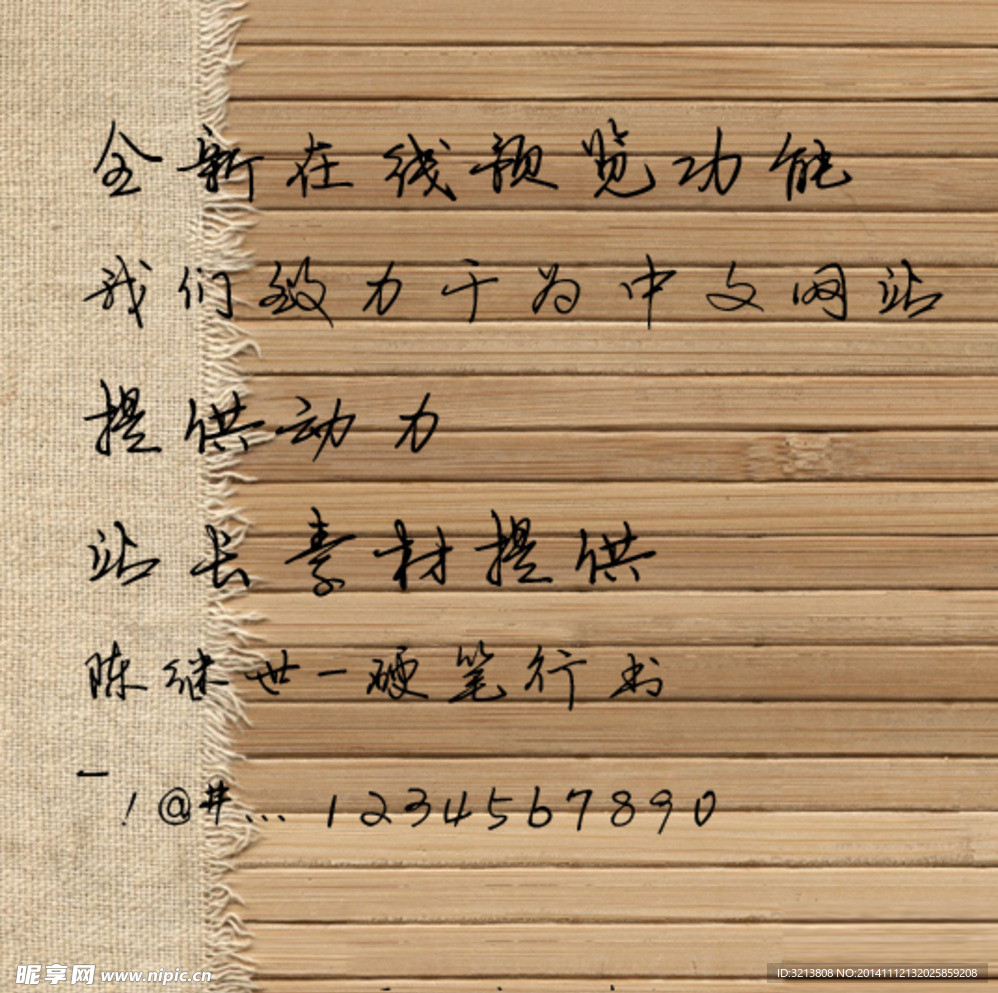 全新在线预览功能
我们致力于为中文网站
提供动力
站长素材提供
陈继世-硬笔行书
!@#… 1234567890
昵享网 www.nipic.cn
ID:3213808 NO:20141112132025859208